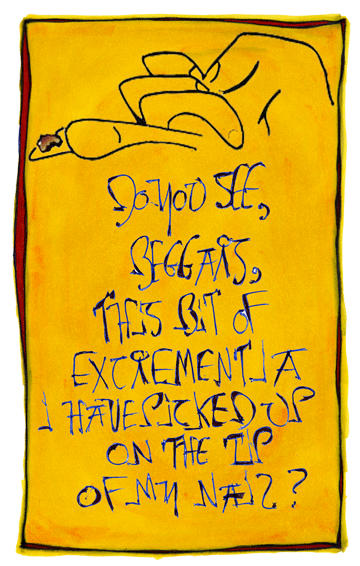 DO YOU SEE,
BEGGARS,
THIS BIT OF
EXCREMENT I A
I HAVE PICKED UP
ON THE TIP
OF MY NAIL?